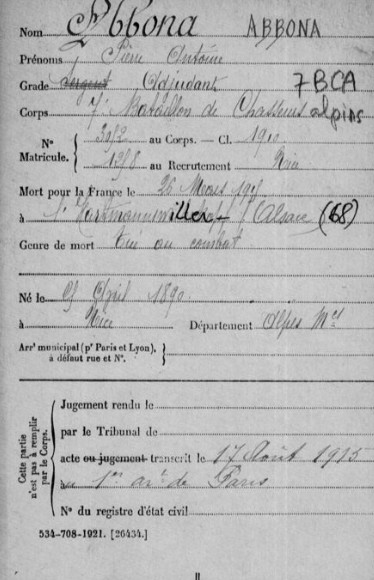 Nom Abbona ABBONA
Prénoms Pierre Antoine
Grade Sergent Adjudant 7 BCA
Corps 7e Bataillon de Chasseurs alpins
N° Matricule. { au Corps. — Cl. 1910
au Recrutement Nice
Mort pour la France le 26 Mars 1915
à l'Hartmannswillerkopf Alsace (68)
Genre de mort Tué au combat
Né le Avril 1890
à Nice Département Alpes Mmes
Arrt municipal (pr Paris et Lyon), à défaut rue et N°. }
Cette partie n'est pas à remplir par le Corps.
Jugement rendu le
par le Tribunal de
acte ou jugement transcrit le 17 Août 1915
au 1er arrt de Paris
N° du registre d'état civil
534-708-1921. [26434.]